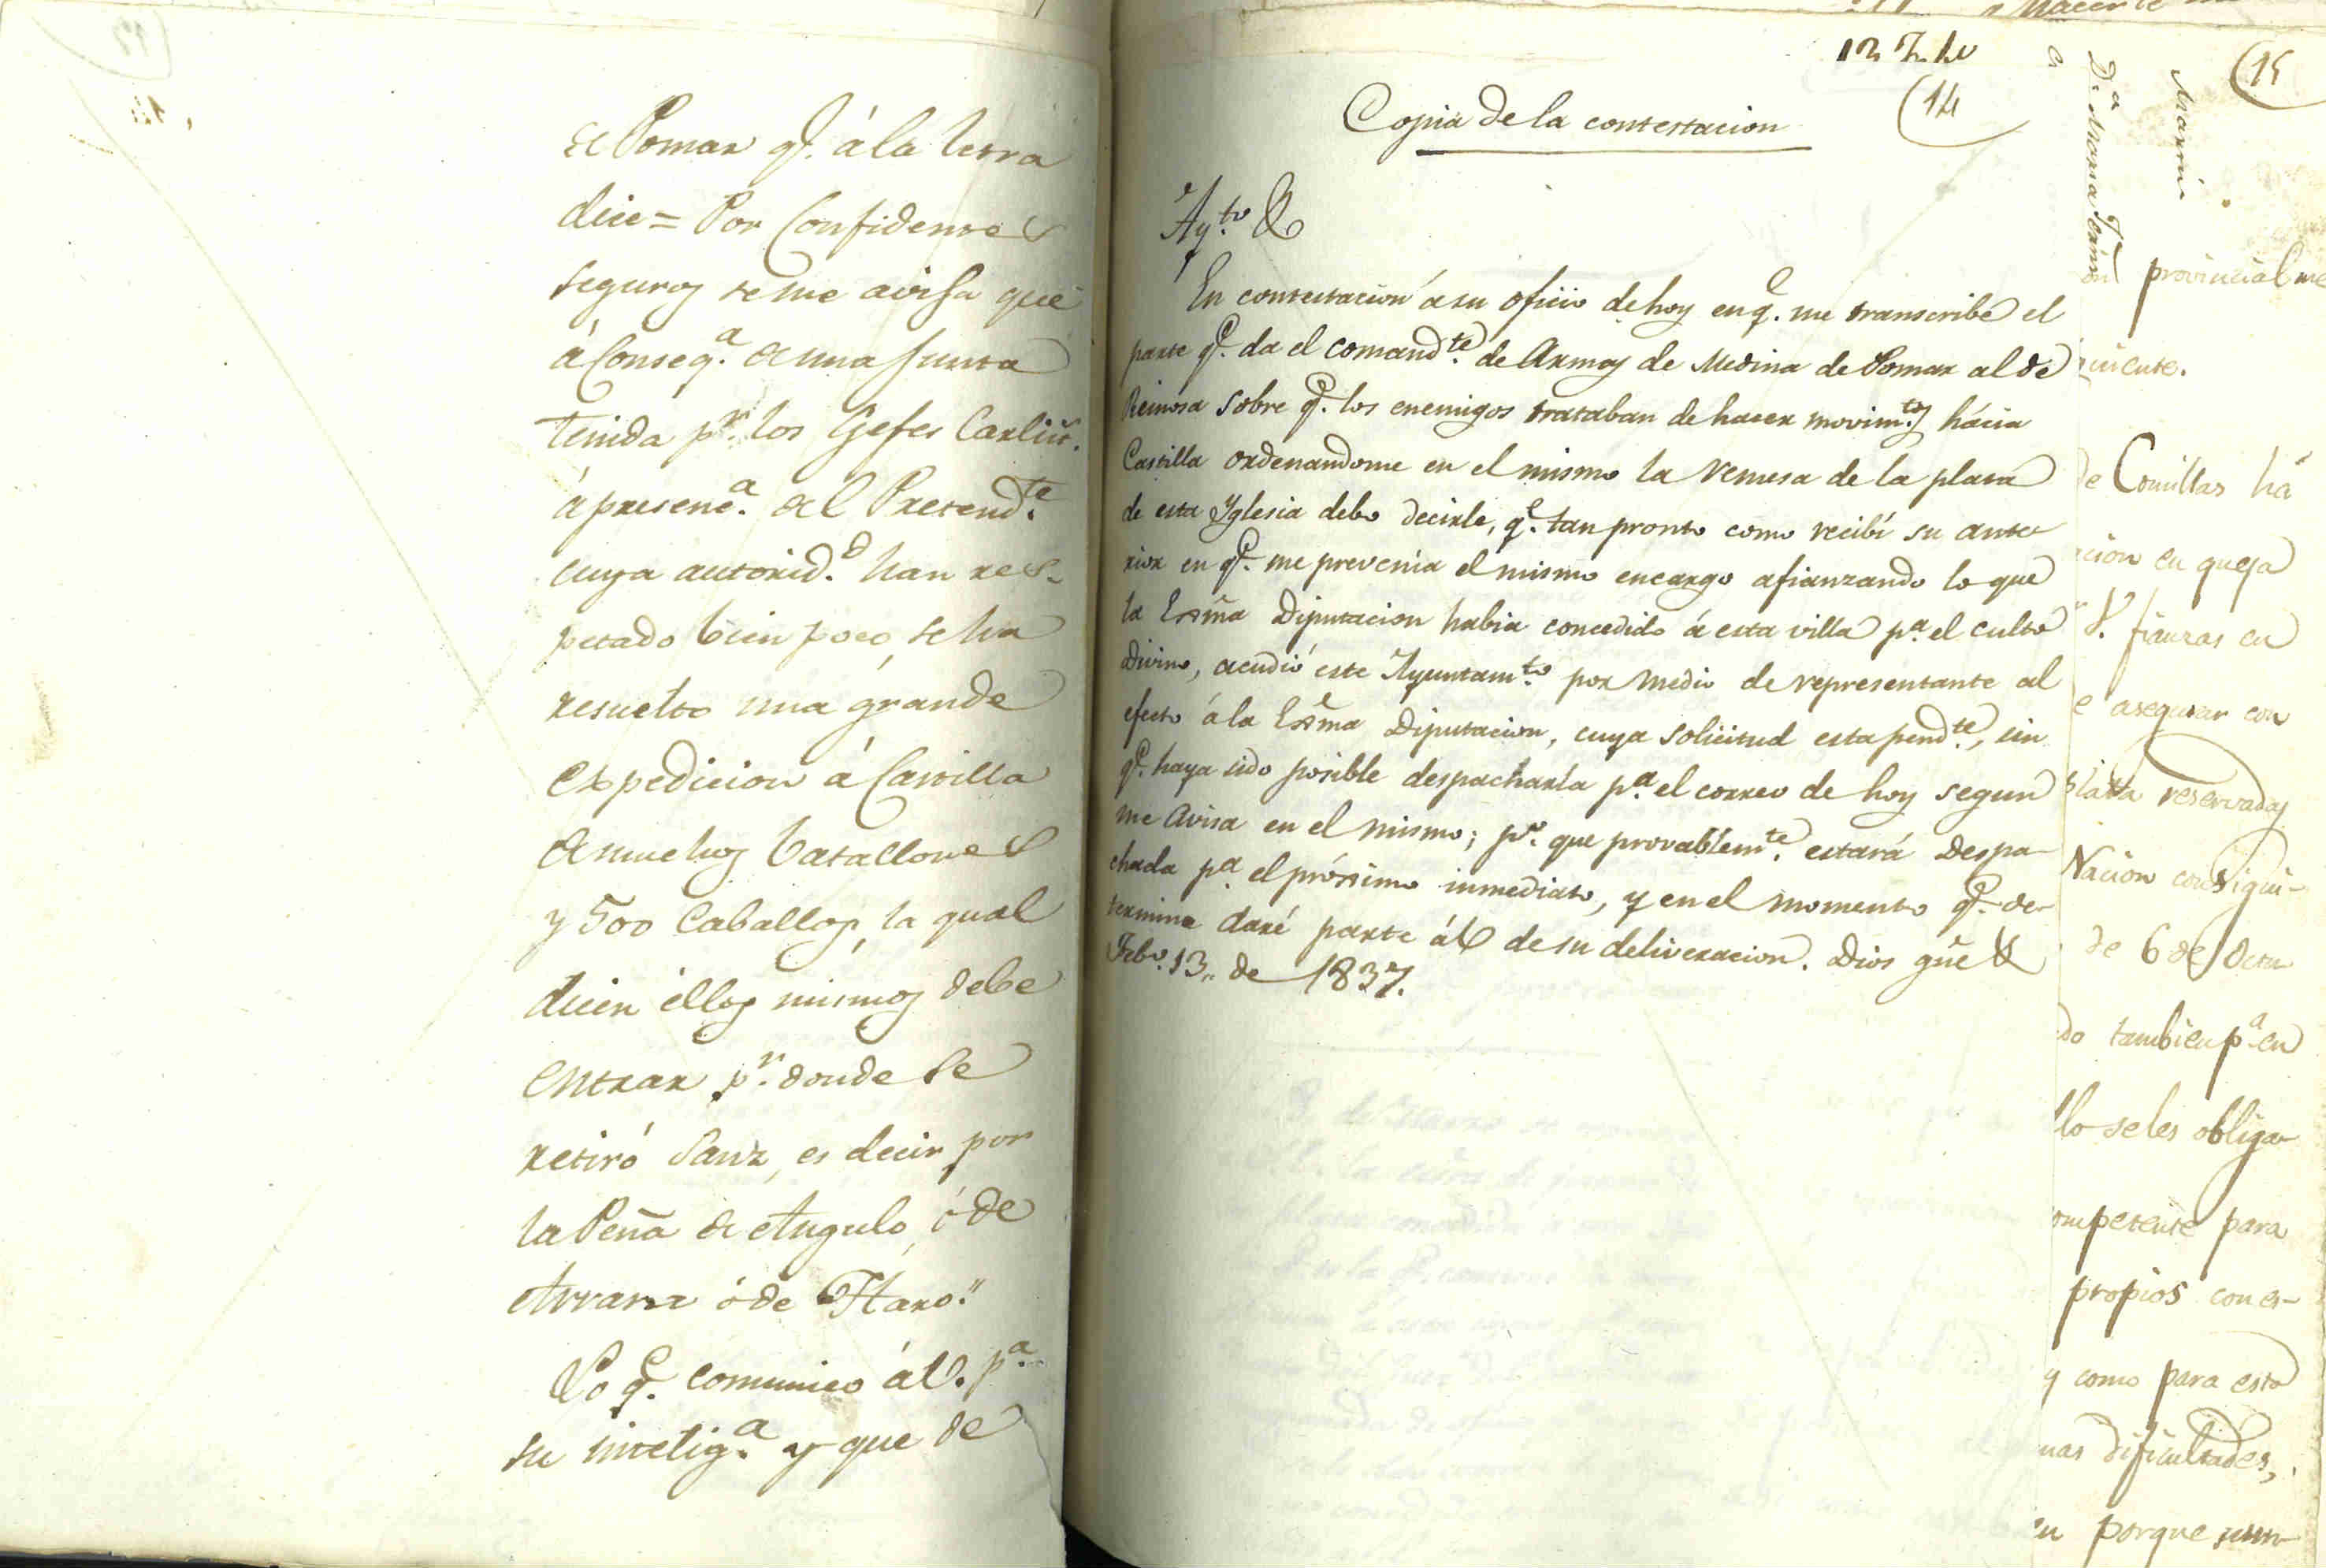 de Pomar q.e á la letra
dice = Por Confidentes
seguros se me avisa que
á Conseq.a de una Junta
tenida p.r los Gefes Carlis.
á presenc.a del Pretend.te
cuya autorid.d han res-
petado bien poco, se ha
resuelto una grande
expedicion á Castilla
de muchos batallones
y 500 Caballos, la qual
dicen éllos mismos debe
entrar p.r donde se
retiró Sanz, es decir por
la Peña de Angulo, ó de
ó de Haro."
Lo q.e comunico á V. p.a
su intelig.a y que de
14
Copia de la contestacion
Ay.to &
En contestacion á su oficio de hoy en q.e me transcribe el
parte q.e da el comand.te de Armas de Medina de Pomar al de
Reinosa sobre q.e los enemigos trataban de hacer movim.tos hácia
Castilla ordenandome en el mismo la remesa de la plata
de esta Yglesia debo decirle, q.e tan pronto como recibí su ante
rior en q.e me prevenia el mismo encargo afianzando lo que
la Exma Diputacion habia concedido á esta villa p.a el culto
Divino, acudió este Ayuntam.to por medio de representante al
efecto á la Exma Diputacion, cuya solicitud esta pend.te, sin
q.e haya sido posible despacharla p.a el correo de hoy segun
me avisa en el mismo; p.o que provablem.te estará despa-
chada p.a el próximo inmediato, y en el momento q.e de-
termine daré parte á V de su deliveracion. Dios gūe &
Feb.o 13 de 1837.
15
provincial me
de Comillas ha
en queja
V. fianzas en
e asegurar con
plata reservadas
Nacion consigui-
de 6 de Octu
do tambien p.a en
llo se les obliga
ompetente para
propios con es-
y como para esto
nas dificultades,
porque